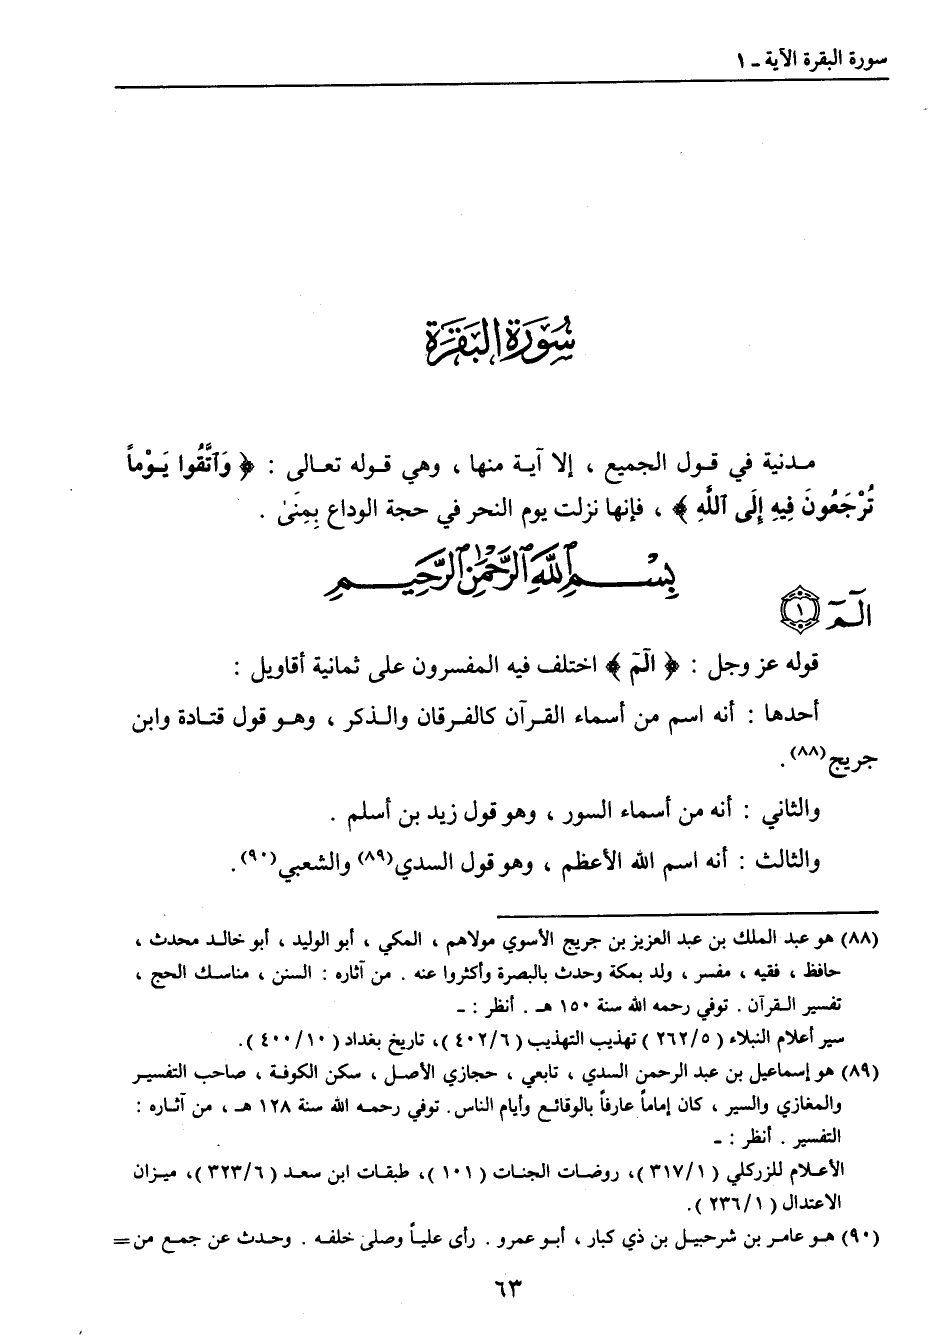 سورة البقرة الآية ـ ١
سُورَةُ البَقَرَة
مدنية في قول الجميع ، إلا آية منها ، وهي قوله تعالى : ﴿ وَٱتَّقُوا يَوْماً
تُرْجَعُونَ فِيهِ إِلَى ٱللَّهِ ﴾ ، فإنها نزلت يوم النحر في حجة الوداع بِمِنَىٰ .
بِسْمِ ٱللَّهِ ٱلرَّحْمَٰنِ ٱلرَّحِيمِ
الٓمٓ ١
قوله عز وجل : ﴿ الٓمٓ ﴾ اختلف فيه المفسرون على ثمانية أقاويل :
أحدها : أنه اسم من أسماء القرآن كالفرقان والذكر ، وهو قول قتادة وابن
جريج(٨٨) .
والثاني : أنه من أسماء السور ، وهو قول زيد بن أسلم .
والثالث : أنه اسم الله الأعظم ، وهو قول السدي(٨٩) والشعبي(٩٠) .
(٨٨) هو عبد الملك بن عبد العزيز بن جريج الأسوي مولاهم ، المكي ، أبو الوليد ، أبو خالد محدث ،
حافظ ، فقيه ، مفسر ، ولد بمكة وحدث بالبصرة وأكثروا عنه . من آثاره : السنن ، مناسك الحج ،
تفسير القرآن . توفي رحمه الله سنة ١٥٠ هـ . أنظر : ـ
سير أعلام النبلاء ( ٢٦٢/٥ ) تهذيب التهذيب ( ٤٠٢/٦ )، تاريخ بغداد ( ٤٠٠/١٠ ).
(٨٩) هو إسماعيل بن عبد الرحمن السدي ، تابعي ، حجازي الأصل ، سكن الكوفة ، صاحب التفسير
والمغازي والسير ، كان إماماً عارفاً بالوقائع وأيام الناس . توفي رحمه الله سنة ١٢٨ هـ ، من آثاره :
التفسير . أنظر : ـ
الأعلام للزركلي ( ٣١٧/١ )، روضات الجنات ( ١٠١ )، طبقات ابن سعد ( ٣٢٣/٦ )، ميزان
الاعتدال ( ٢٣٦/١ ).
(٩٠) هو عامر بن شرحبيل بن ذي كبار ، أبو عمرو . رأى علياً وصلى خلفه . وحدث عن جمع من =
٦٣